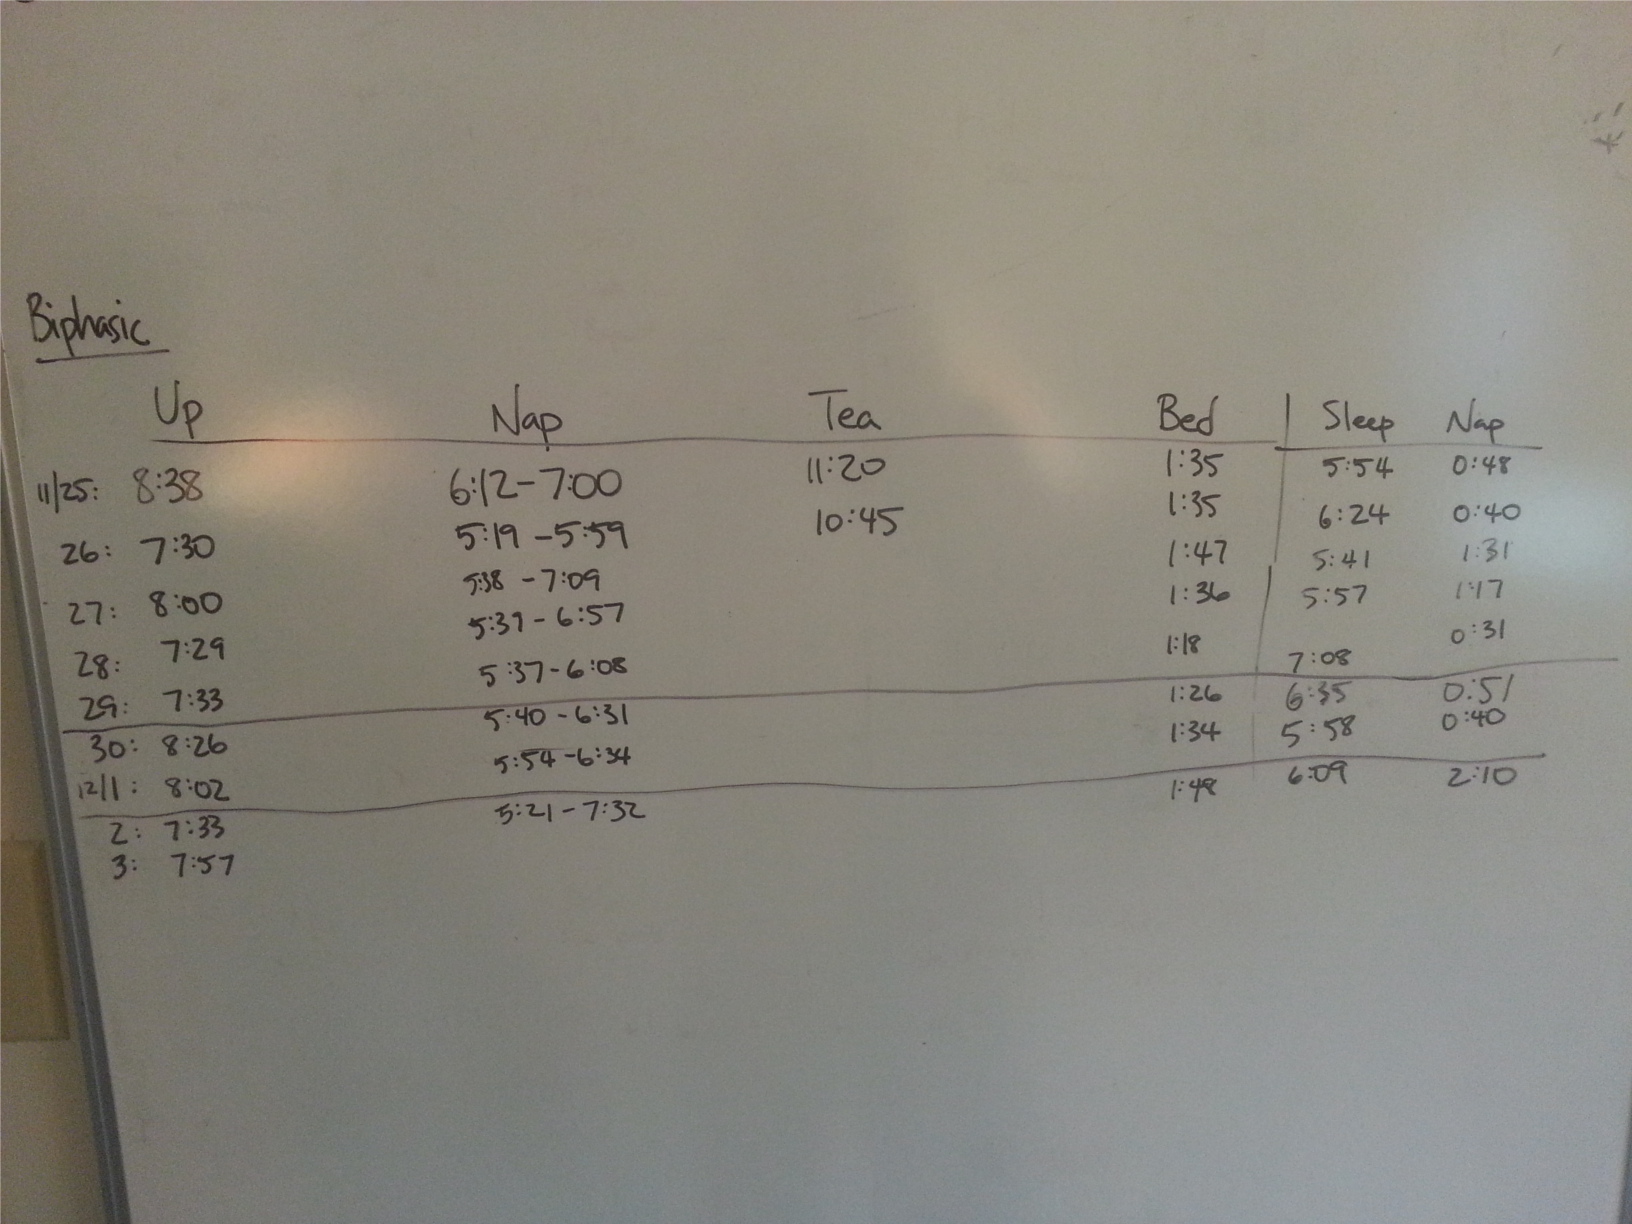 Biphasic
Up Nap Tea Bed Sleep Nap
11/25: 8:38 6:12-7:00 11:20 1:35 5:54 0:48
26: 7:30 5:19-5:59 10:45 1:35 6:24 0:40
27: 8:00 5:38-7:09 1:47 5:41 1:31
28: 7:29 5:39-6:57 1:36 5:57 1:17
29: 7:33 5:37-6:08 1:18 7:08 0:31
30: 8:26 5:40-6:31 1:26 6:35 0:51
12/1: 8:02 5:54-6:34 1:34 5:58 0:40
2: 7:33 5:21-7:32 1:48 6:09 2:10
3: 7:57